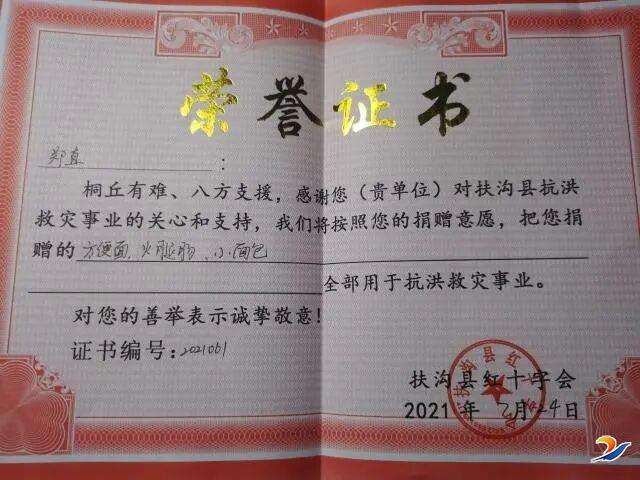 荣誉证书
郑直：
桐丘有难、八方支援，感谢您（贵单位）对扶沟县抗洪
救灾事业的关心和支持，我们将按照您的捐赠意愿，把您捐
赠的方便面、火腿肠、小面包
全部用于抗洪救灾事业。
对您的善举表示诚挚敬意！
证书编号：2021061
扶沟县红十字会
2021年7月24日